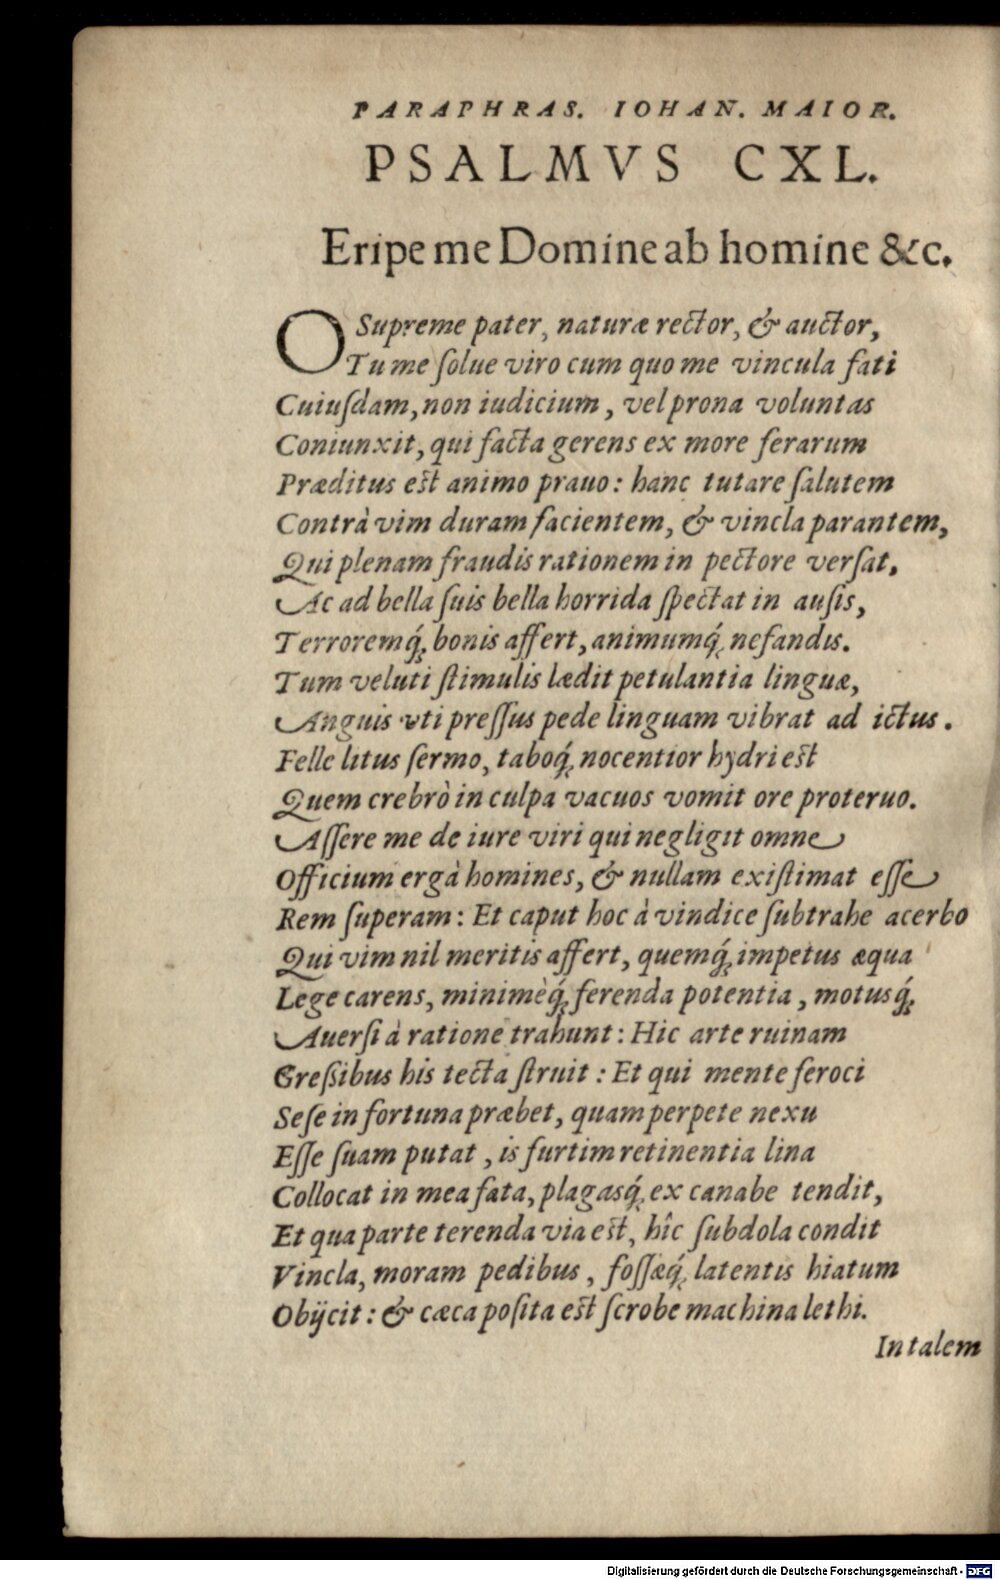 PARAPHRAS. IOHAN. MAIOR.
PSALMVS CXL.
Eripe me Domine ab homine &c.
O Supreme pater, naturæ rector, & auctor,
Tu me ſolue viro cum quo me vincula fati
Cuiuſdam, non iudicium, vel prona voluntas
Coniunxit, qui facta gerens ex more ferarum
Præditus est animo prauo: hanc tutare ſalutem
Contrà vim duram facientem, & vincla parantem,
Qui plenam fraudis rationem in pectore verſat,
Ac ad bella ſuis bella horrida ſpectat in auſis,
Terroremq́; bonis affert, animumq́; nefandis.
Tum veluti ſtimulis lædit petulantia linguæ,
Anguis vti preſſus pede linguam vibrat ad ictus.
Felle litus ſermo, taboq́; nocentior hydri est
Quem crebrò in culpa vacuos vomit ore proteruo.
Aſſere me de iure viri qui negligit omne
Officium ergà homines, & nullam exiſtimat eſſe
Rem ſuperam: Et caput hoc à vindice ſubtrahe acerbo
Qui vim nil meritis affert, quemq́; impetus æqua
Lege carens, minimèq́; ferenda potentia, motusq́;
Auerſi à ratione trahunt: Hic arte ruinam
Greſſibus his tecta ſtruit: Et qui mente feroci
Seſe in fortuna præbet, quam perpete nexu
Eſſe ſuam putat, is furtim retinentia lina
Collocat in mea fata, plagasq́; ex canabe tendit,
Et qua parte terenda via est, hîc ſubdola condit
Vincla, moram pedibus, foſſæq́; latentis hiatum
Obijcit: & cæca poſita est ſcrobe machina lethi.
In talem
Digitalisierung gefördert durch die Deutsche Forschungsgemeinschaft - DFG